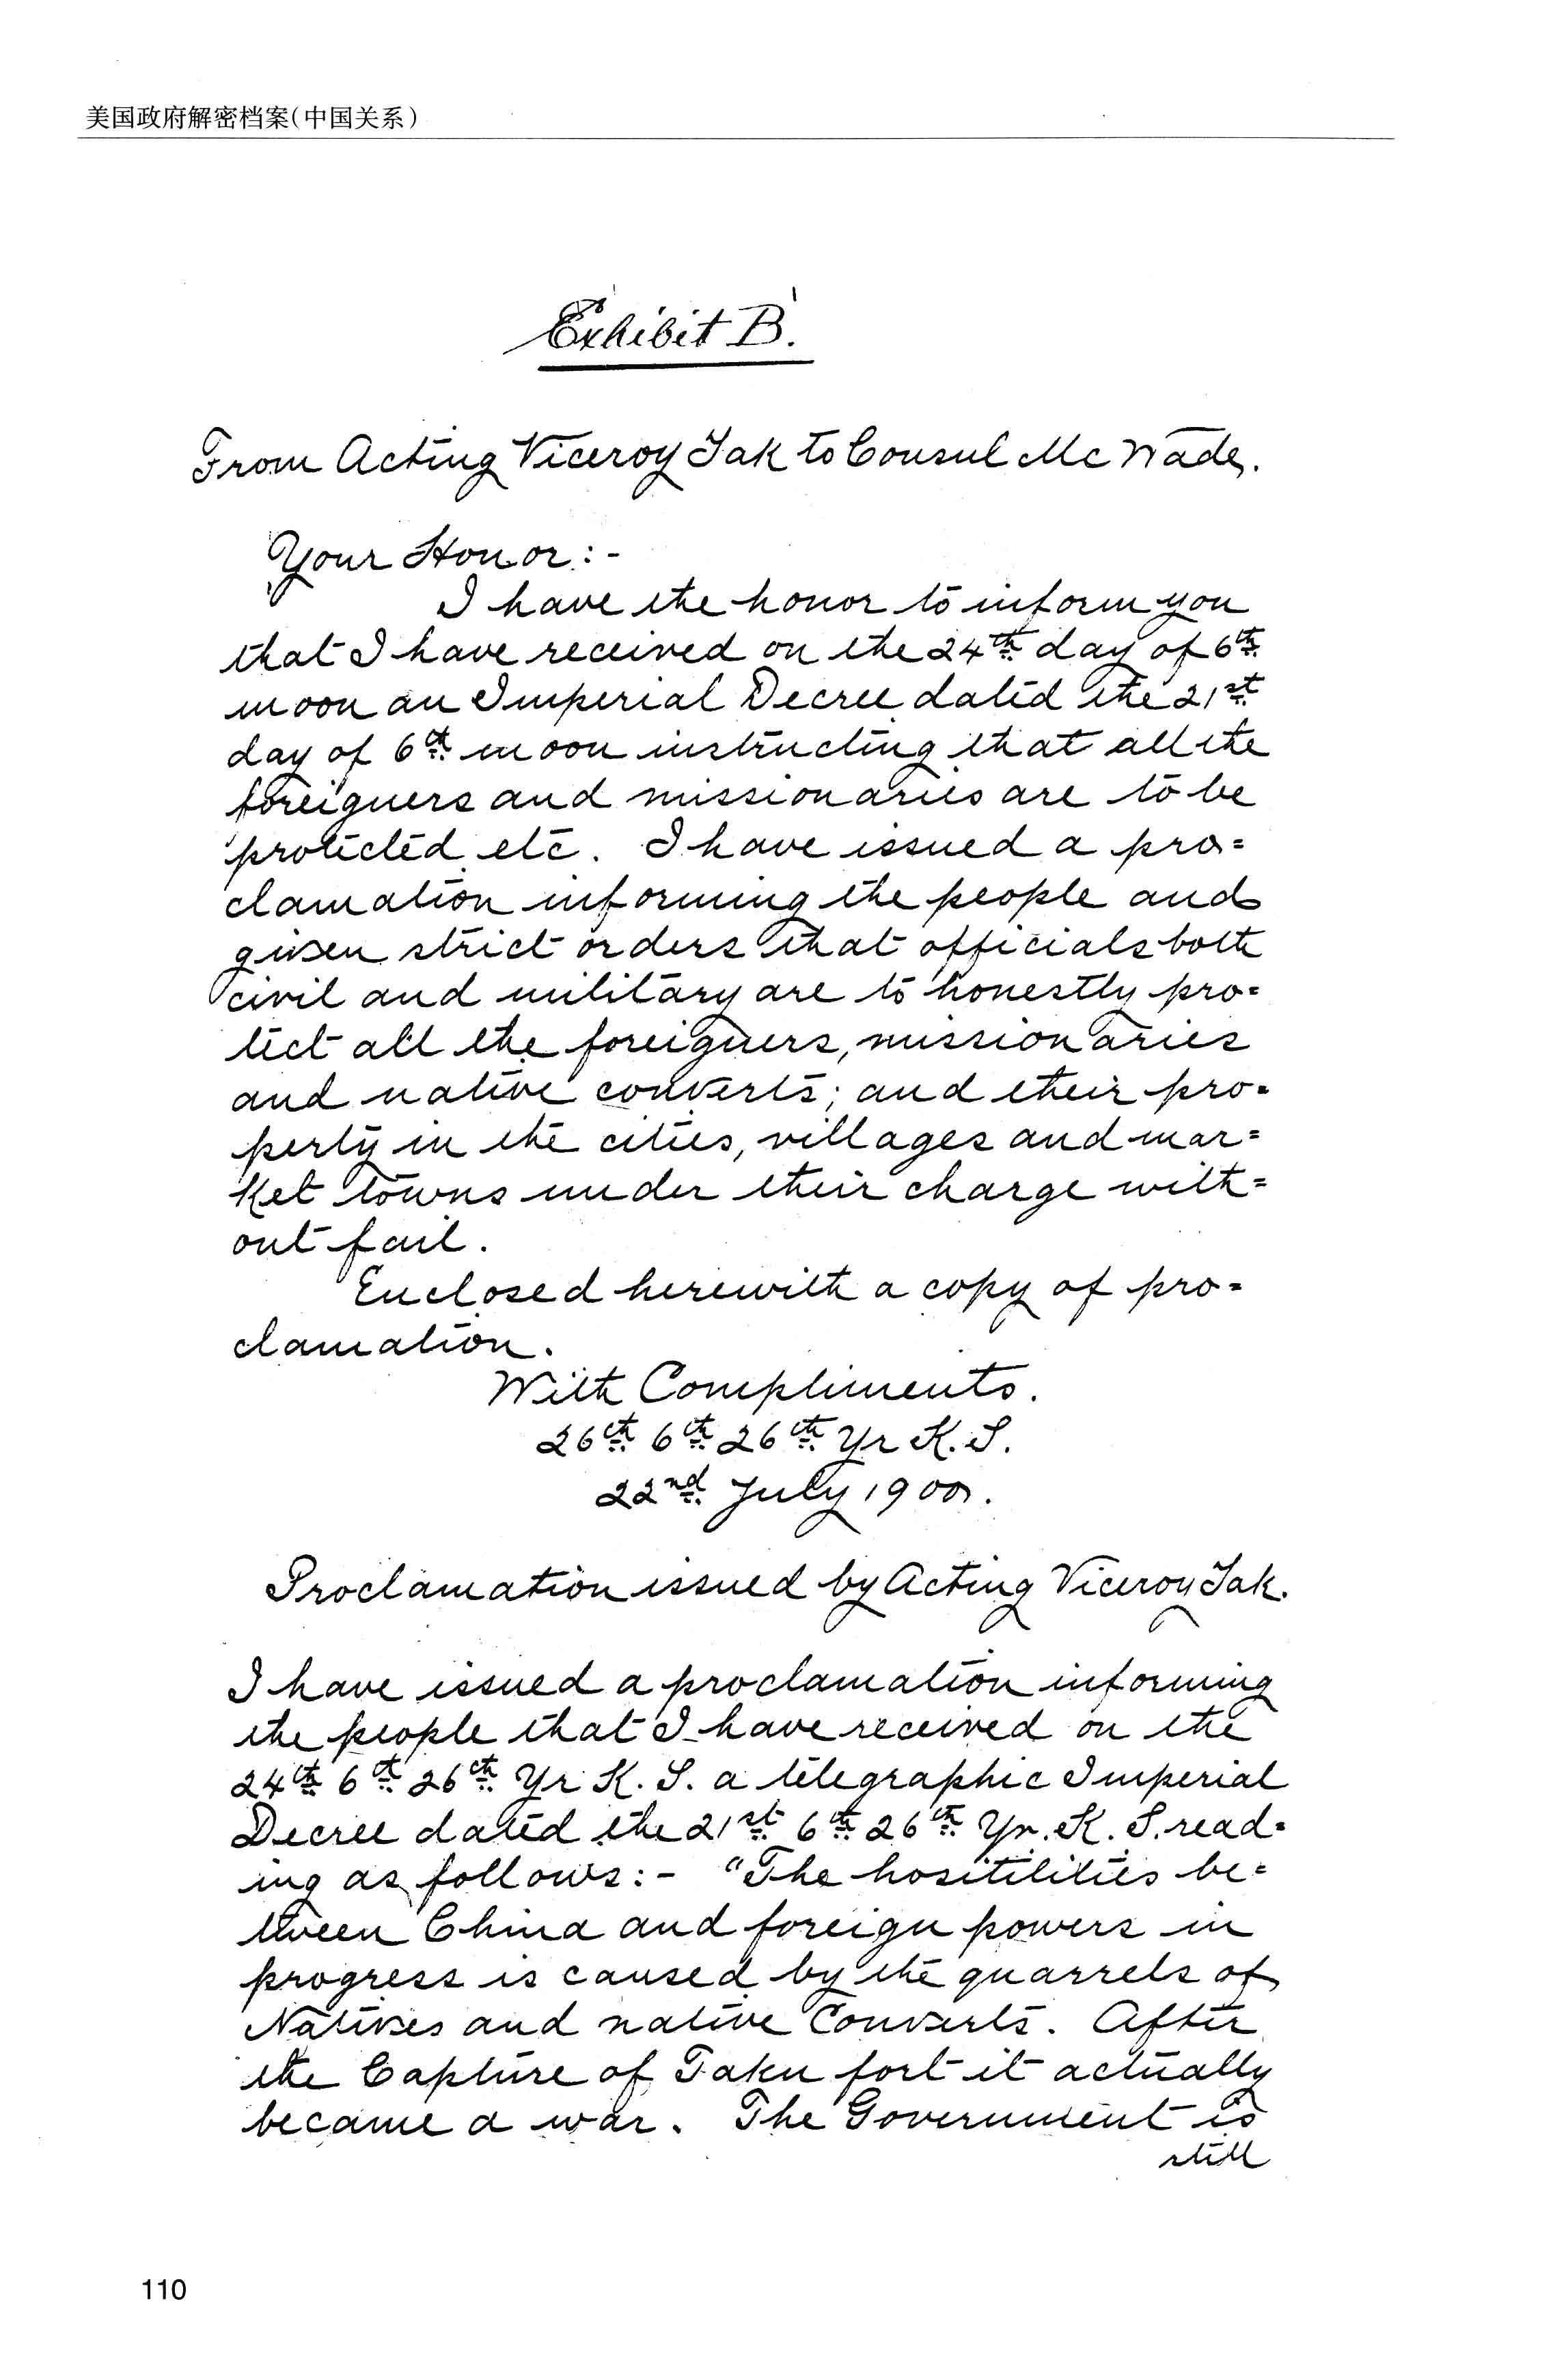 美国政府解密档案(中国关系)
Exhibit B.
From Acting Viceroy Tak to Consul McWade.
Your Honor:-
I have the honor to inform you
that I have received on the 24th day of 6th
moon an Imperial Decree dated the 21st
day of 6th moon instructing that all the
foreigners and missionaries are to be
protected etc. I have issued a pro=
clamation informing the people and
given strict orders that officials both
civil and military are to honestly pro=
tect all the foreigners, missionaries
and native converts; and their pro=
perty in the cities, villages and mar=
ket towns under their charge with=
out fail.
Enclosed herewith a copy of pro=
clamation.
With Compliments.
26th 6th 26th Yr K. S.
22nd July 1900.
Proclamation issued by Acting Viceroy Tak.
I have issued a proclamation informing
the people that I have received on the
24th 6th 26th Yr K. S. a telegraphic Imperial
Decree dated the 21st 6th 26th Yr. K. S. read=
ing as follows:- "The hositilities be=
tween China and foreign powers in
progress is caused by the quarrels of
Natives and native Converts. After
the Capture of Taku fort it actually
became a war. The Government is
still
110